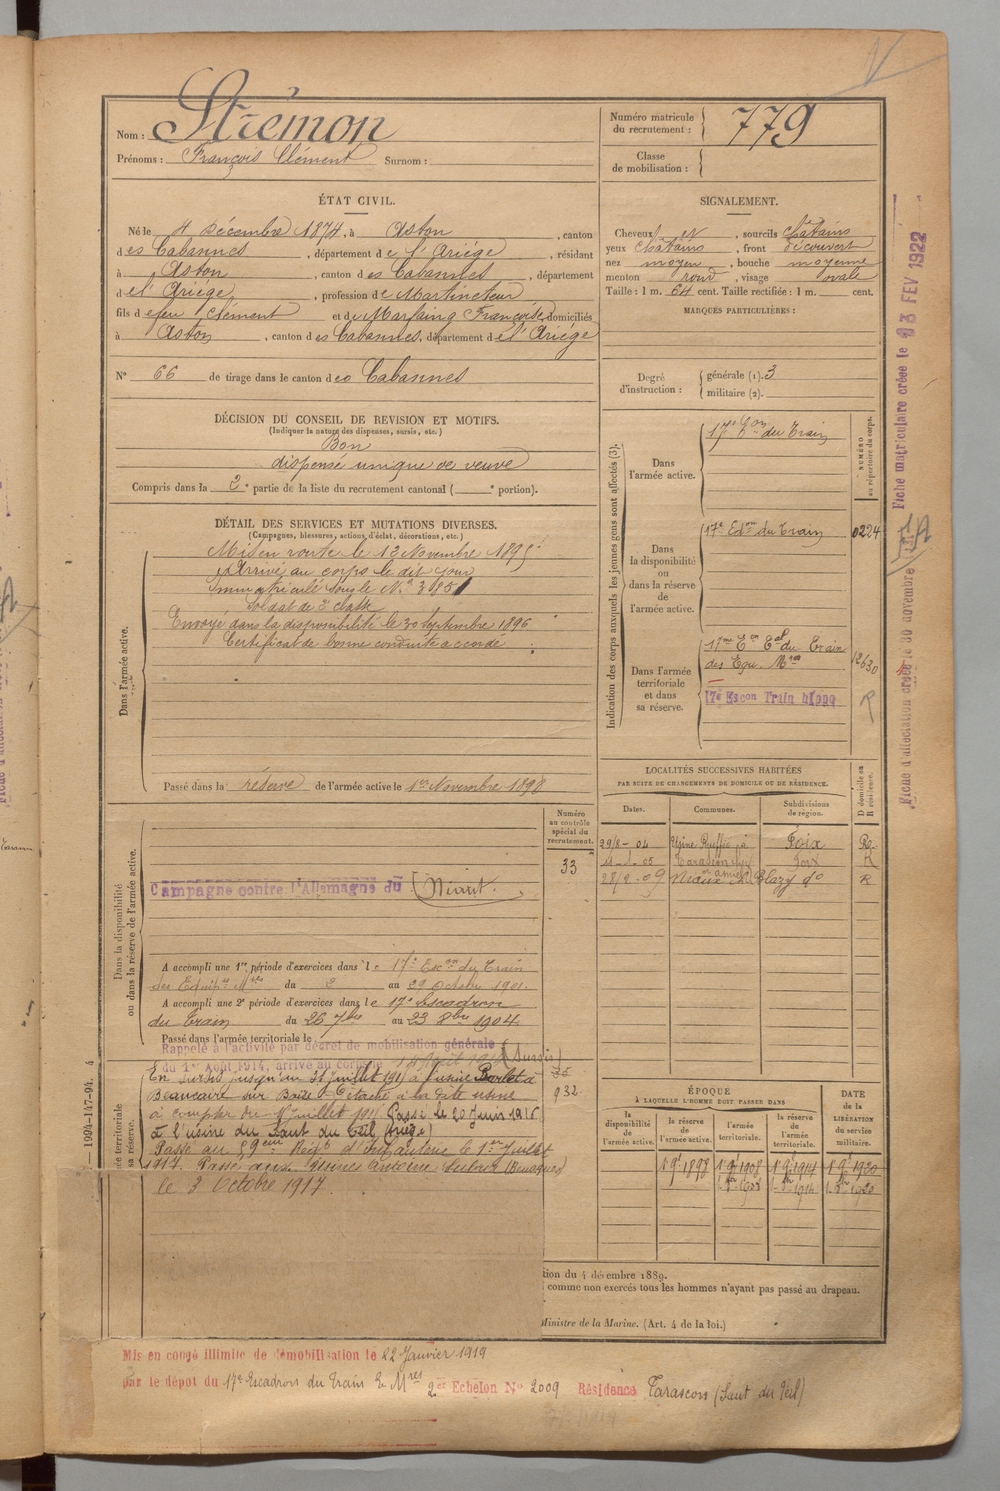 Nom : Strémon
Prénoms : François Clément Surnom :
Numéro matricule du recrutement : 779
Classe de mobilisation :
ÉTAT CIVIL.
Né le 4 Décembre 1874, à Aston, canton
des Cabannes, département de l'Ariége, résidant
à Aston, canton des Cabannes, département
de l'Ariége, profession de
fils de feu Clément et de Marfaing Françoise, domiciliés
à Aston, canton des Cabannes, département de l'Ariége
N° 66 de tirage dans le canton des Cabannes
DÉCISION DU CONSEIL DE REVISION ET MOTIFS.
(Indiquer la nature des dispenses, sursis, etc.)
Bon
dispensé unique de veuve
Compris dans la 2e partie de la liste du recrutement cantonal ( e portion).
DÉTAIL DES SERVICES ET MUTATIONS DIVERSES.
(Campagnes, blessures, actions d'éclat, décorations, etc.)
Dans l'armée active.
Mis en route le 13 Novembre 1895
Arrivé au corps le dit jour
Immatriculé sous le N° 3851
Soldat de 2e classe
Envoyé dans la disponibilité le 30 Septembre 1896
Certificat de bonne conduite accordé
Passé dans la réserve de l'armée active le 1er Novembre 1898
SIGNALEMENT.
Cheveux et, sourcils châtains
yeux châtains, front découvert
nez moyen, bouche moyenne
menton rond, visage ovale
Taille : 1 m. 64 cent. Taille rectifiée : 1 m. cent.
MARQUES PARTICULIÈRES :
Degré d'instruction : générale (1). 3
militaire (2).
Indication des corps auxquels les jeunes gens sont affectés (3).
NUMÉRO au répertoire du corps.
Dans l'armée active.
17e Eon du Train
Dans la disponibilité ou dans la réserve de l'armée active.
17e Edron du Train 0224
Dans l'armée territoriale et dans sa réserve.
17me Eon Eal du Train
des Equ. Mres 12630
17e Escon Train
R
LOCALITÉS SUCCESSIVES HABITÉES
PAR SUITE DE CHANGEMENTS DE DOMICILE OU DE RÉSIDENCE.
Dates. Communes. Subdivisions de région. D domicile ou R résidence.
29/8-04 Usine à Foix R.
05 Tarascon Foix R
28/2-09 Niaux d° R
Dans la disponibilité ou dans la réserve de l'armée active.
Numéro au contrôle spécial du recrutement.
33
Campagne contre l'Allemagne du Néant.
A accompli une 1re période d'exercices dans le 17e Escon du Train
des Equipes Mres du 2 au 29 octobre 1901
A accompli une 2e période d'exercices dans le 17e Escadron
du Train du 26 7bre au 23 8bre 1904
Passé dans l'armée territoriale le
Rappelé à l'activité par décret de mobilisation générale (Sursis)
du 1er Août 1914, arrivé au corps le
35
932
En sursis jusqu'au 31 Juillet 1917 à l'usine
Beaucaire sur
à compter du 1er juillet 1915 Passé le 20 Juin 1916
à l'usine du Saut du Teil (Ariège)
Passé au 59eme Régt d'Infanterie le 1er Juillet
1917. Passé aux
le 3 Octobre 1917.
ÉPOQUE
À LAQUELLE L'HOMME DOIT PASSER DANS
la disponibilité de l'armée active. la réserve de l'armée active. l'armée territoriale. la réserve de l'armée territoriale.
DATE de la LIBÉRATION du service militaire.
1er 9bre 1898 1er 9bre 1908 1er 9bre 1914 1er 9bre 1920
tion du 4 décembre 1889.
comme non exercés tous les hommes n'ayant pas passé au drapeau.
Ministre de la Marine. (Art. 4 de la loi.)
1994-147-94.
Mis en congé illimité de démobilisation le 22 Janvier 1919
par le dépôt du 17e Escadron du Train E. Mres 2er Echelon No 2009 Résidence Tarascon (Saut du Teil)
Fiche matriculaire créée le 13 FEV 1922
Fiche d'affectation créée le 30 novembre